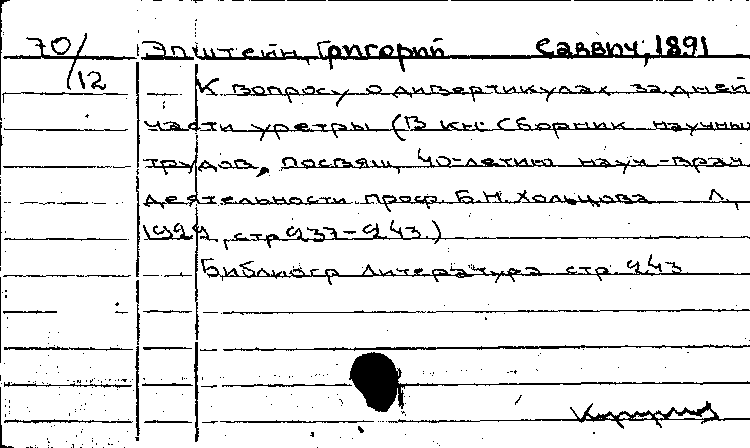 70/12 Эпштейн, Григорий Саввич, 1891
К вопросу о дивертикулах задней
части уретры (В кн: Сборник научных
трудов, посвящ. 40-летию науч-врач.
деятельности проф. Б.Н. Хольцова Л,
1929, стр 237-243.)
Библиогр литература стр. 243